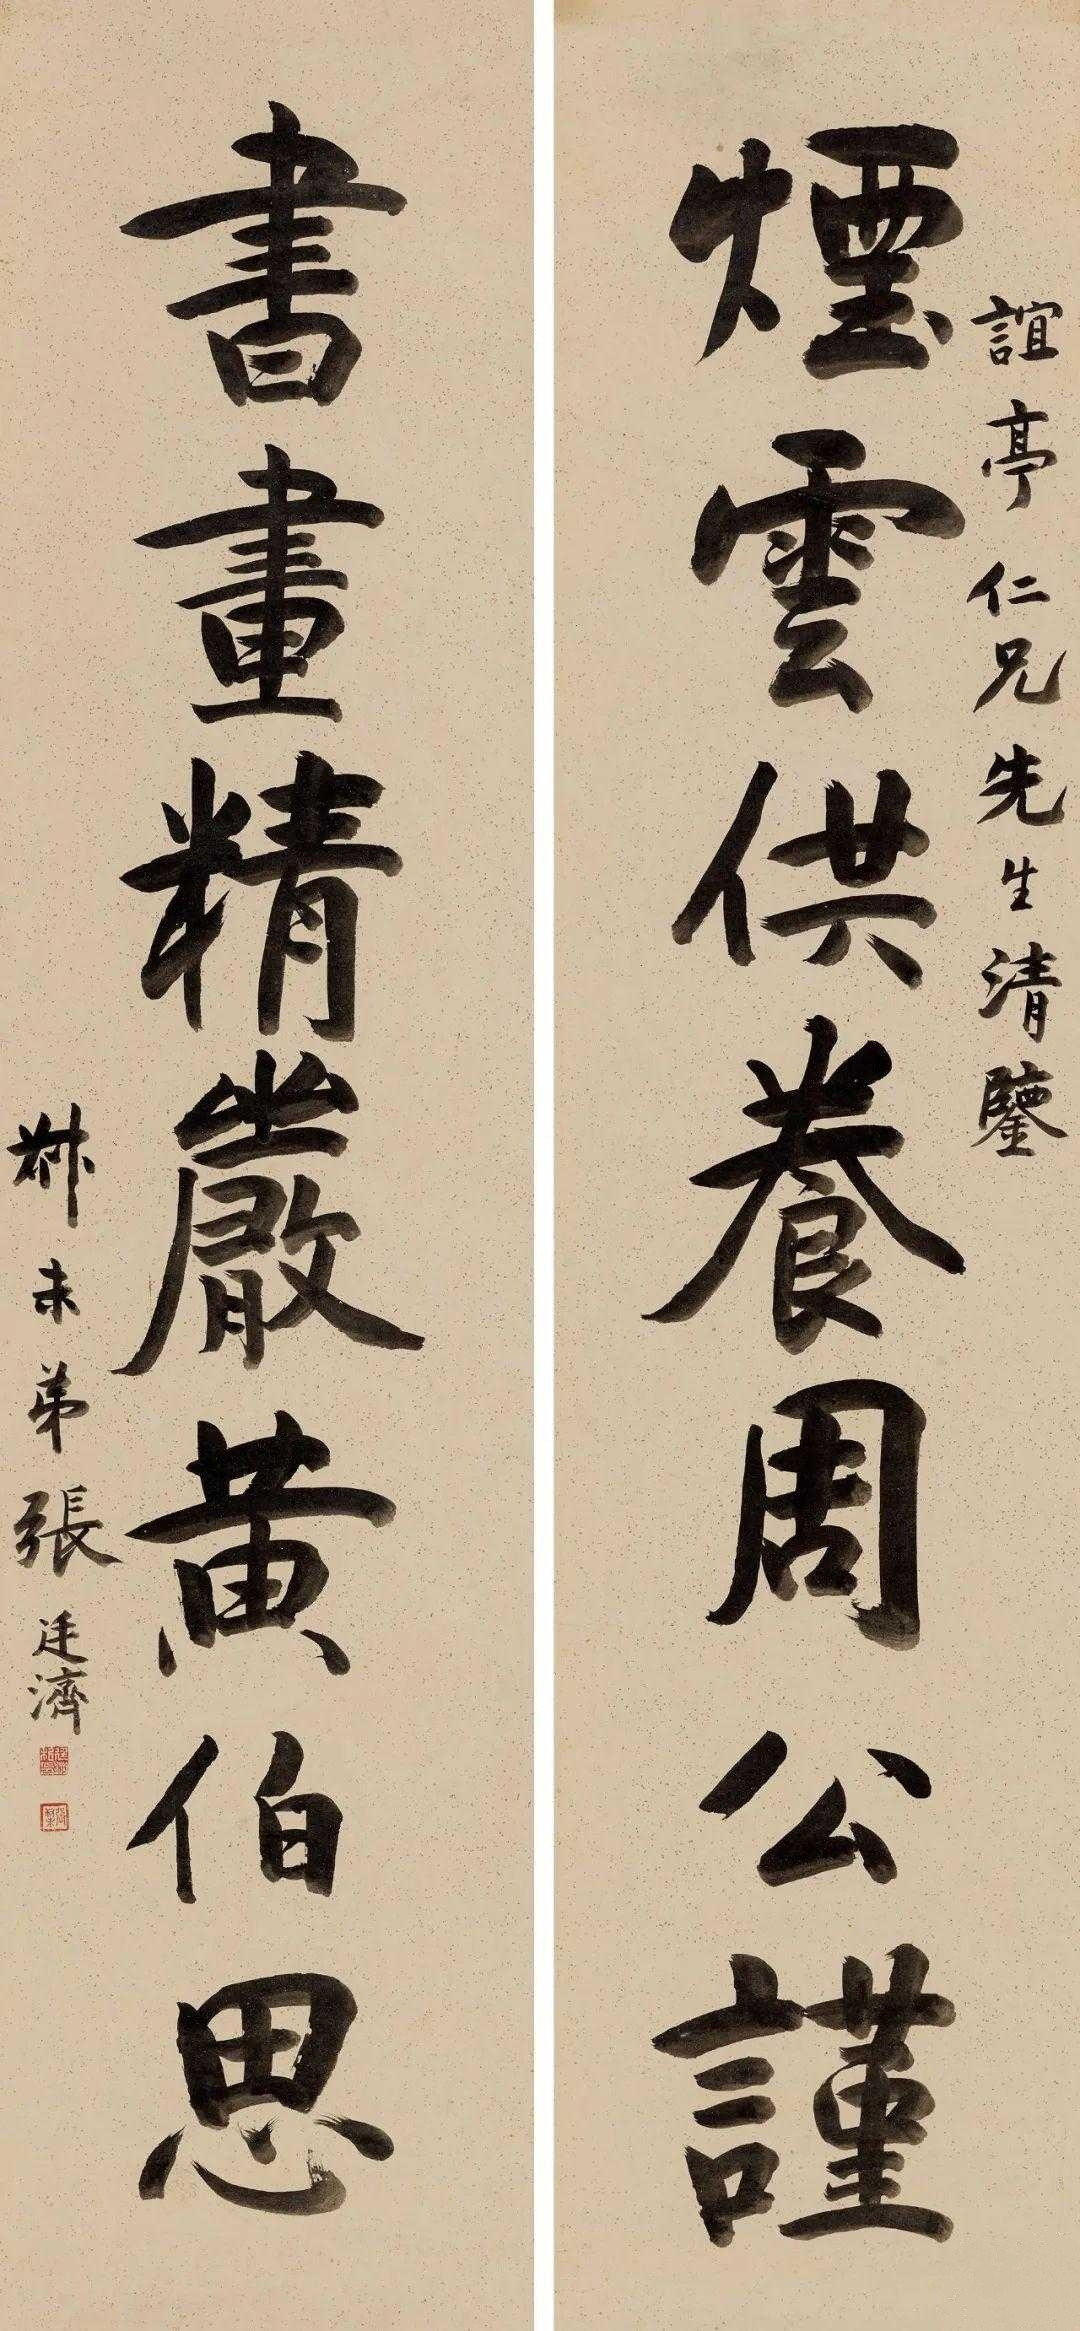 誼亭仁兄先生清鑒
煙雲供養周公謹
書畫精嚴黃伯思
叔未弟張廷濟